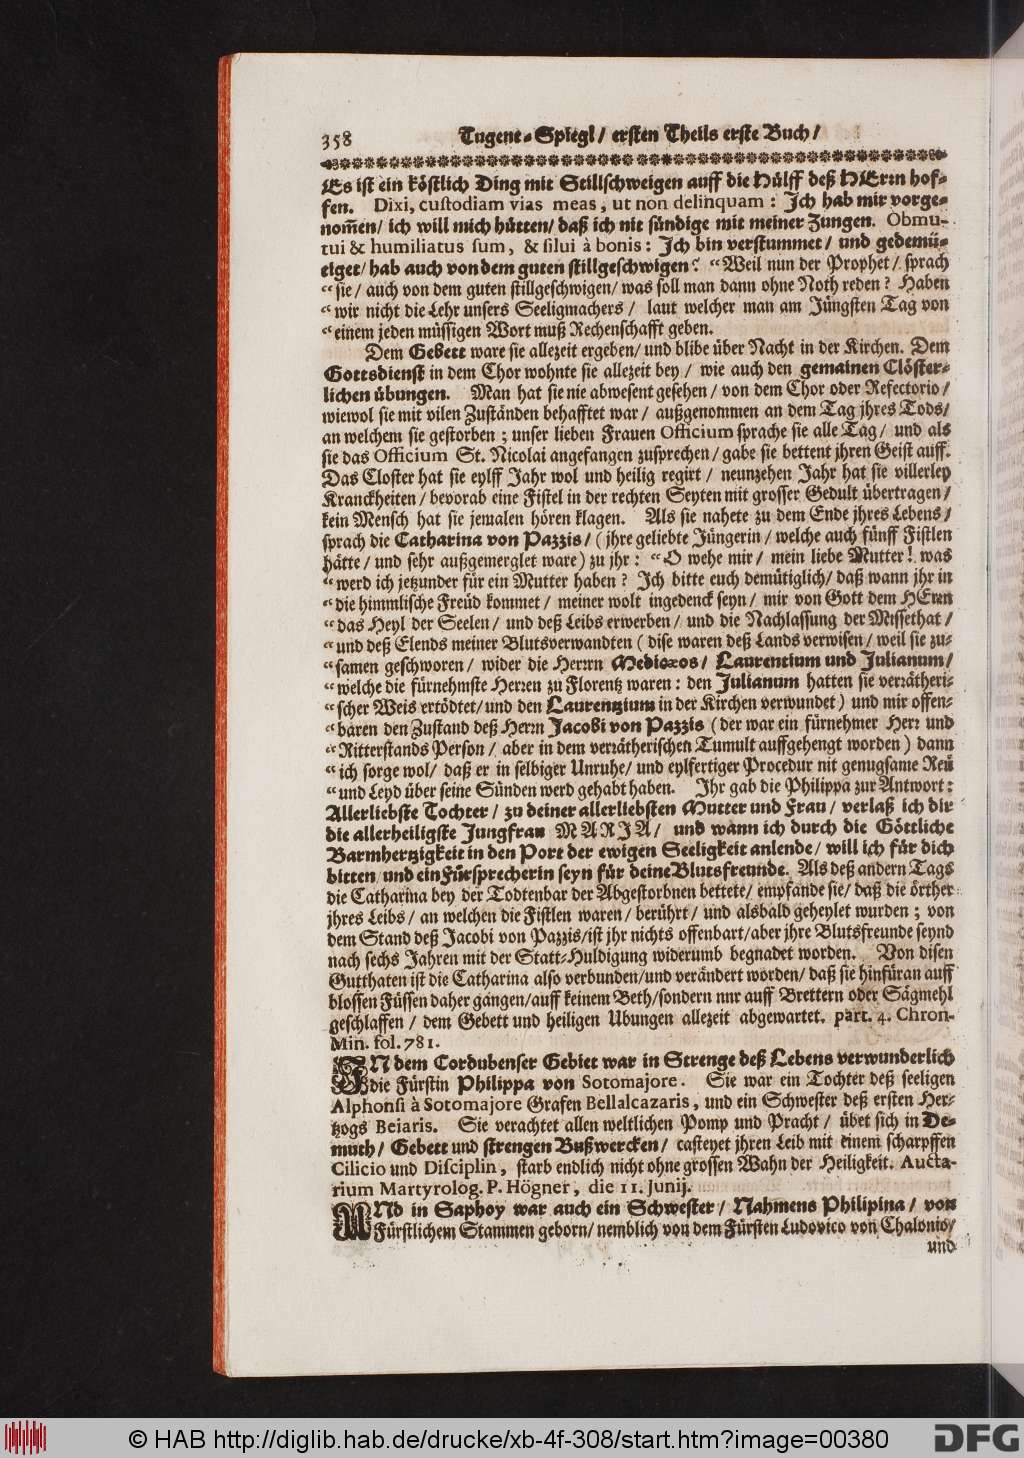 358 Tugent-Spiegl/ ersten Theils erste Buch/
Es ist ein köstlich Ding mit Stillschweigen auff die Hülff deß HErrn hof-
fen. Dixi, custodiam vias meas, ut non delinquam: Ich hab mir vorge-
nom̃en/ ich will mich hütten/ daß ich nit sündige mit meiner Zungen. Obmu-
tui & humiliatus sum, & silui à bonis: Ich bin verstummet/ und gedemü-
tiget/ hab auch von dem guten stillgeschwigen? “Weil nun der Prophet/ sprach
“sie/ auch von dem guten stillgeschwigen/ was soll man dann ohne Noth reden? Haben
“wir nicht die Lehr unsers Seeligmachers/ laut welcher man am Jüngsten Tag von
“einem jeden müssigen Wort muß Rechenschafft geben.
Dem Gebett ware sie allezeit ergeben/ und blibe über Nacht in der Kirchen. Dem
Gottsdienst in dem Chor wohnte sie allezeit bey/ wie auch den gemainen Clöster-
lichen übungen. Man hat sie nie abwesent gesehen/ von dem Chor oder Refectorio/
wiewol sie mit vilen Zuständen behafftet war/ außgenommen an dem Tag jhres Tods/
an welchem sie gestorben; unser lieben Frauen Officium sprache sie alle Tag/ und als
sie das Officium St. Nicolai angefangen zusprechen/ gabe sie bettent jhren Geist auff.
Das Closter hat sie eylff Jahr wol und heilig regirt/ neunzehen Jahr hat sie villerley
Kranckheiten/ bevorab eine Fistel in der rechten Seyten mit grosser Gedult übertragen/
kein Mensch hat sie jemalen hören klagen. Als sie nahete zu dem Ende jhres Lebens/
sprach die Catharina von Pazzis/ (jhre geliebte Jüngerin/ welche auch fünff Fistlen
hätte/ und sehr außgemerglet ware) zu jhr: “O wehe mir/ mein liebe Mutter! was
“werd ich jetzunder für ein Mutter haben? Ich bitte euch demütiglich/ daß wann jhr in
“die himmlische Freüd kommet/ meiner wolt ingedenck seyn/ mir von Gott dem HErrn
“das Heyl der Seelen/ und deß Leibs erwerben/ und die Nachlassung der Missethat/
“und deß Elends meiner Blutsverwandten (dise waren deß Lands verwisen/ weil sie zu-
“samen geschworen/ wider die Herrn Mediceos/ Laurentium und Julianum/
“welche die fürnehmste Herren zu Florentz waren: den Julianum hatten sie verrätheri-
“scher Weis ertödtet/ und den Laurentzium in der Kirchen verwundet) und mir offen-
“baren den Zustand deß Herrn Jacobi von Pazzis (der war ein fürnehmer Herr und
“Ritterstands Person/ aber in dem verrätherischen Tumult auffgehengt worden) dann
“ich sorge wol/ daß er in selbiger Unruhe/ und eylfertiger Procedur nit genugsame Reü
“und Leyd über seine Sünden werd gehabt haben. Ihr gab die Philippa zur Antwort:
Allerliebste Tochter/ zu deiner allerliebsten Mutter und Frau/ verlaß ich dir
die allerheiligste Jungfrau MARJA/ und wann ich durch die Göttliche
Barmhertzigkeit in den Port der ewigen Seeligkeit anlende/ will ich für dich
bitten/ und ein Fürsprecherin seyn für deine Blutsfreunde. Als deß andern Tags
die Catharina bey der Todtenbar der Abgestorbnen bettete/ empfande sie/ daß die örther
jhres Leibs/ an welchen die Fistlen waren/ berührt/ und alsbald geheylet wurden; von
dem Stand deß Jacobi von Pazzis/ ist jhr nichts offenbart/ aber jhre Blutsfreunde seynd
nach sechs Jahren mit der Statt-Huldigung widerumb begnadet worden. Von disen
Gutthaten ist die Catharina also verbunden/ und verändert worden/ daß sie hinfüran auff
blossen Füssen daher gangen/ auff keinem Beth/ sondern nur auff Brettern oder Sägmehl
geschlaffen/ dem Gebett und heiligen Ubungen allezeit abgewartet. part. 4. Chron.
Min. fol. 781.
IN dem Cordubenser Gebiet war in Strenge deß Lebens verwunderlich
die Fürstin Philippa von Sotomajore. Sie war ein Tochter deß seeligen
Alphonsi à Sotomajore Grafen Bellalcazaris, und ein Schwester deß ersten Her-
tzogs Beiaris. Sie verachtet allen weltlichen Pomp und Pracht/ übet sich in De-
muth/ Gebett und strengen Bußwercken/ casteyet jhren Leib mit einem scharpffen
Cilicio und Disciplin, starb endlich nicht ohne grossen Wahn der Heiligkeit. Aucta-
rium Martyrolog. P. Högner, die 11. Junij.
UNd in Saphoy war auch ein Schwester/ Nahmens Philipina/ von
Fürstlichem Stammen geborn/ nemblich von dem Fürsten Ludovico von Chalonio/
und
© HAB http://diglib.hab.de/drucke/xb-4f-308/start.htm?image=00380
DFG